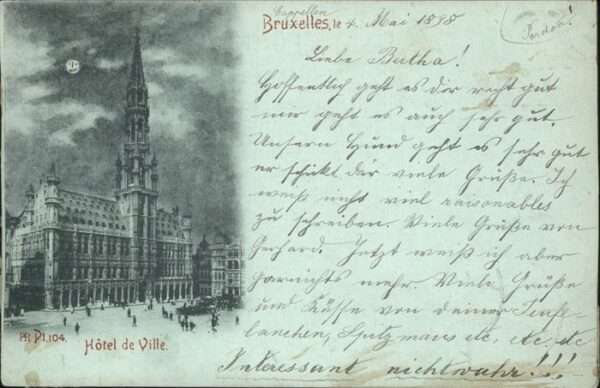 Cappellen
Bruxelles, le 4. Mai 1898
Pardon!
Liebe Butha!
Hoffentlich geht es dir recht gut
mir geht es auch sehr gut.
Unserm Hund geht es sehr gut
er schikt dir viele Grüße. Ich
weiß nicht viel raisonables
zu schreiben. Viele Grüße von
Gerhard. Jetzt weiß ich aber
garnichts mehr. Viele Grüße
und Küsse von deiner
lanchen, Spitzmaus etc, etc, etc
Interessant nichtwahr!!!
Pl.104.
Hôtel de Ville.